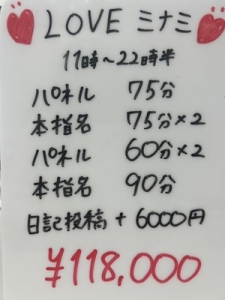 LOVE ミナミ
11時〜22時半
パネル 75分
本指名 75分×2
パネル 60分×2
本指名 90分
日記投稿 + 6000円
¥118,000